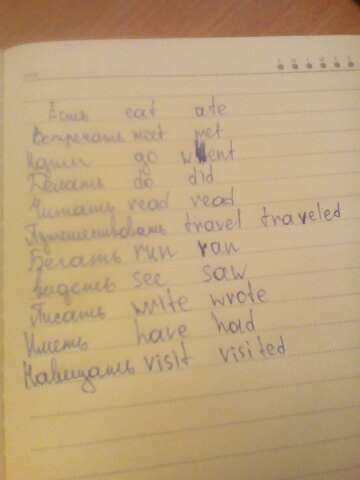 Есть eat ate
Встречать meet met
Идти go went
Делать do did
Читать read read
Путешествовать travel traveled
Бегать run ran
видеть see saw
Писать write wrote
Иметь have had
Навещать visit visited